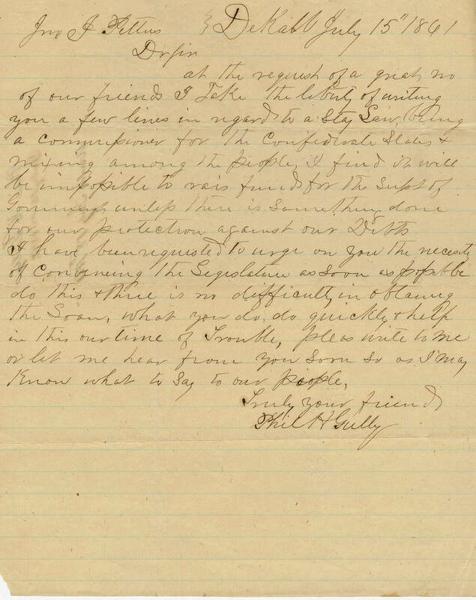 Jno J Pettus } DeKalb July 15" 1861
Dr Sir
at the request of a great no
of our friends I Take the liberty of writing
you a few lines in regard to a Stay Law, being
a commissioner for the Confederate States &
mixing among the people, I find it will
be impossible to rais funds for the Supt of
Government unless there is Something done
for our protection against our Debts
I have been requested to urge on you the necesity
of Convening the Legislature as soon as posible
do this & there is no difficulty in obtaining
the Loan, what you do, do quickly & help
in this our time of Trouble, pleas write to me
or let me hear from you soon so as I may
Know what to Say to our people,
Truly your friend
Phil H Gully